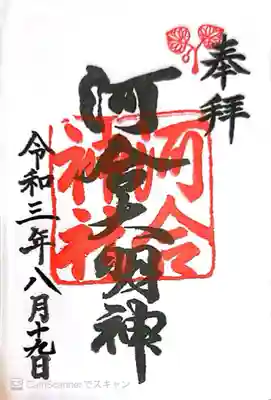 奉拝
河合大明神
河合
神社
令和三年八月十九日
CamScannerでスキャン